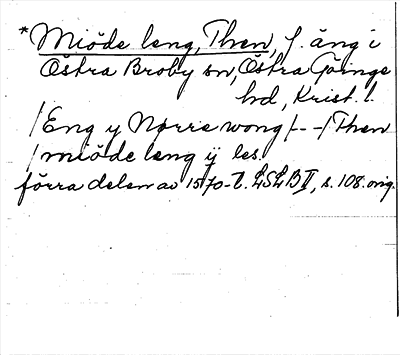 *Miöde leng, Then, f. äng i
Östra Broby sn, Östra Göinge
hd, Krist. l.
/Eng y Nørre wong/- -/Then
/miöde leng ÿ les
förra delen av 1570-t. LSLB II, s. 108. orig.